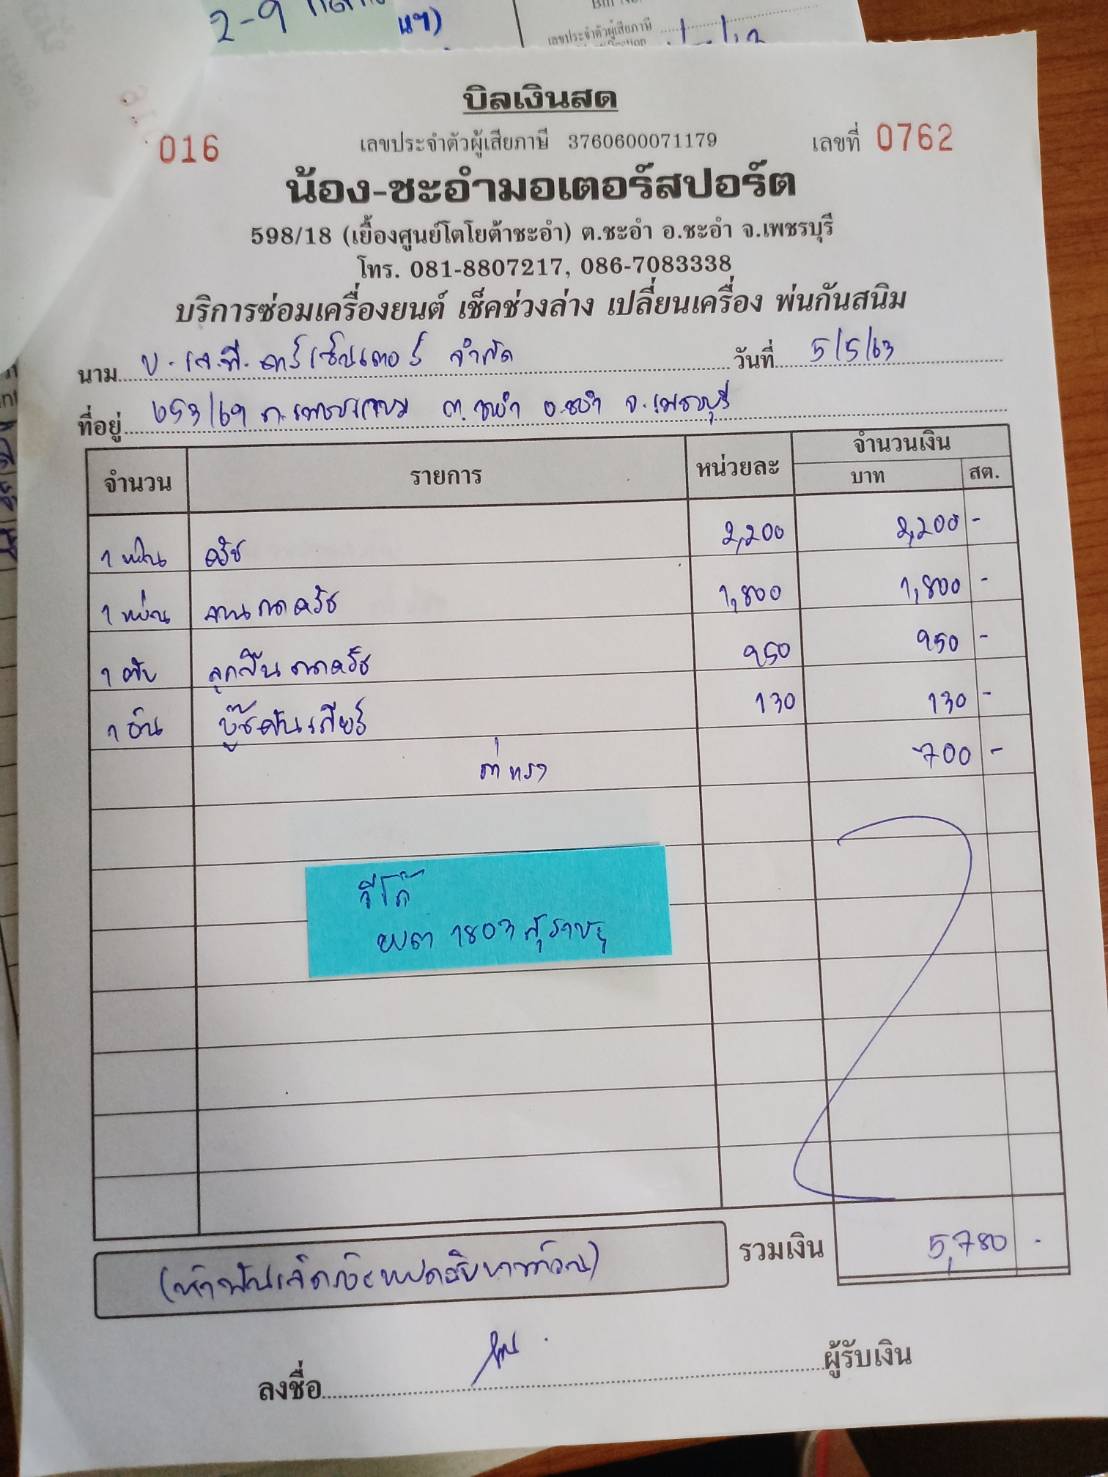 2-9
นฯ)
เลขประจำตัวผู้เสียภาษี
บิลเงินสด
016
เลขประจำตัวผู้เสียภาษี 3760600071179
เลขที่ 0762
น้อง-ชะอำมอเตอร์สปอร์ต
598/18 (เยื้องศูนย์โตโยต้าชะอำ) ต.ชะอำ อ.ชะอำ จ.เพชรบุรี
โทร. 081-8807217, 086-7083338
บริการซ่อมเครื่องยนต์ เช็คช่วงล่าง เปลี่ยนเครื่อง พ่นกันสนิม
นาม บ. เอ.พี. คาร์เซ็นเตอร์ จำกัด วันที่ 5/5/63
ที่อยู่ 653/69 ถ.เพชรเกษม ต.ชะอำ อ.ชะอำ จ.เพชรบุรี
จำนวน รายการ หน่วยละ จำนวนเงิน
บาท สต.
1 แผ่น ครัช 2,200 2,200 -
1 แผ่น จานกดครัช 1,800 1,800 -
1 ตับ ลูกปืนกดครัช 950 950 -
1 อัน บู๊ชคันเกียร์ 130 130 -
ค่าแรง 700 -
วีโก้
1803 สุราษฎ
รวมเงิน 5,780 -
(ห้าพันเจ็ดร้อยแปดสิบบาทถ้วน)
ลงชื่อ ผู้รับเงิน